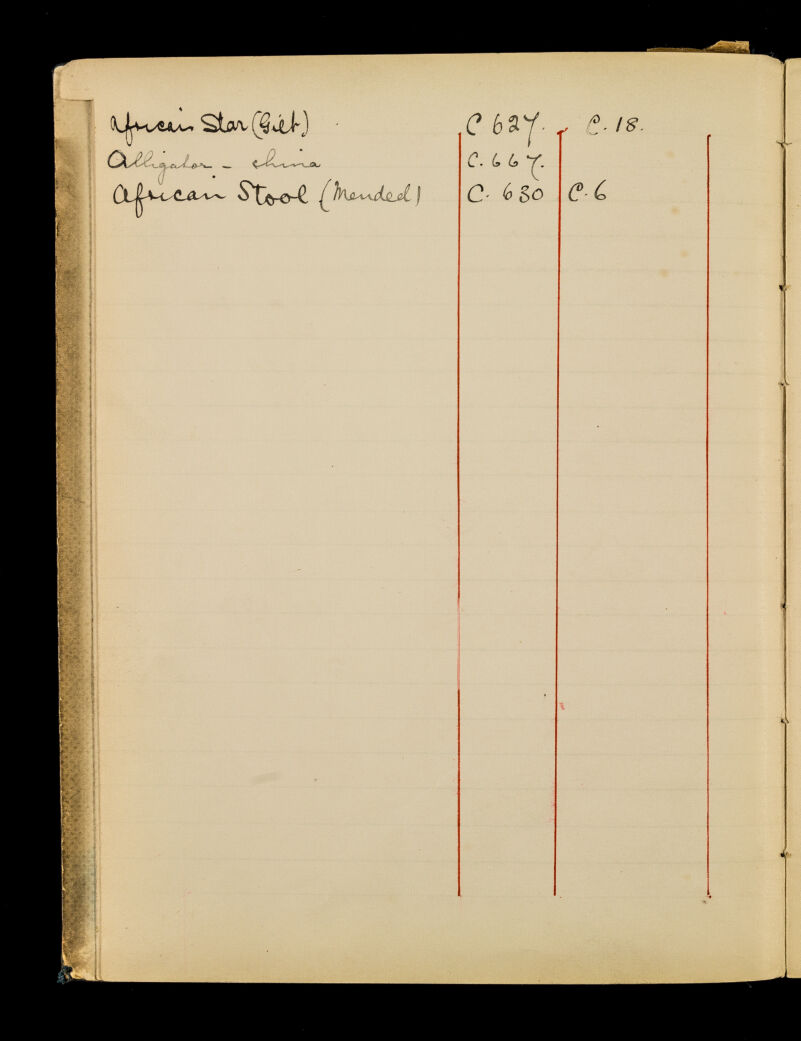 African Star (Gilt) C 627. C. 18.
Alligator - china C. 667.
African Stool (Mended) C. 630 C. 6